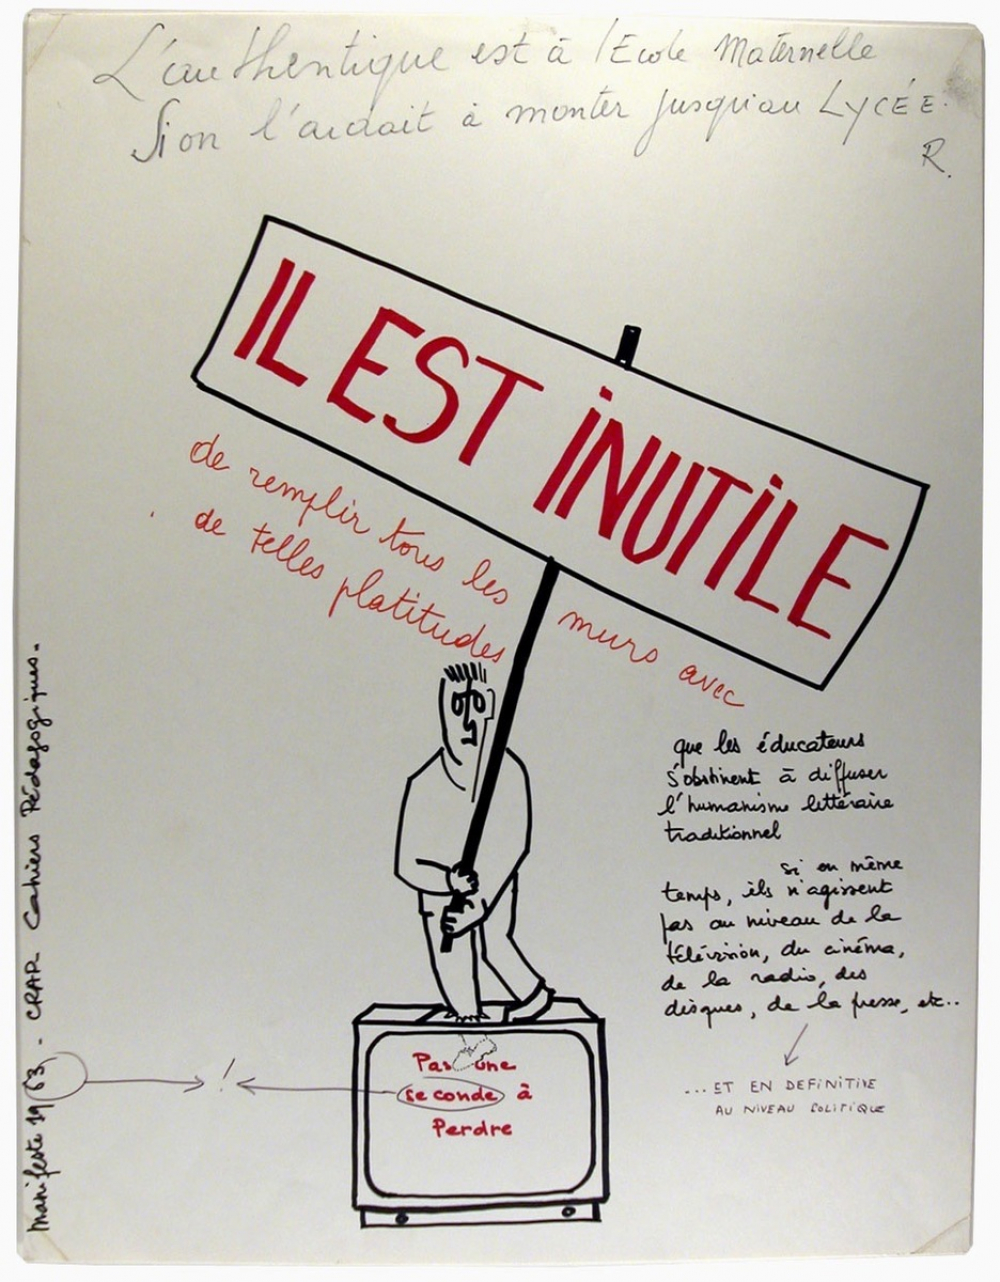 L'authentique est à l'Ecole Maternelle
Si on l'aidait à monter jusqu'au LYCÉE.
R.
IL EST INUTILE
de remplir tous les murs avec
de telles platitudes
que les éducateurs
s'obstinent à diffuser
l'humanisme littéraire
traditionnel
si en même
temps, ils n'agissent
pas au niveau de la
télévision, du cinéma,
de la radio, des
disques, de la presse, etc..
...ET EN DEFINITIVE
AU NIVEAU POLITIQUE
Pas une
seconde à
Perdre
!
Manifeste 1963. - CRAR Cahiers Pédagogiques.